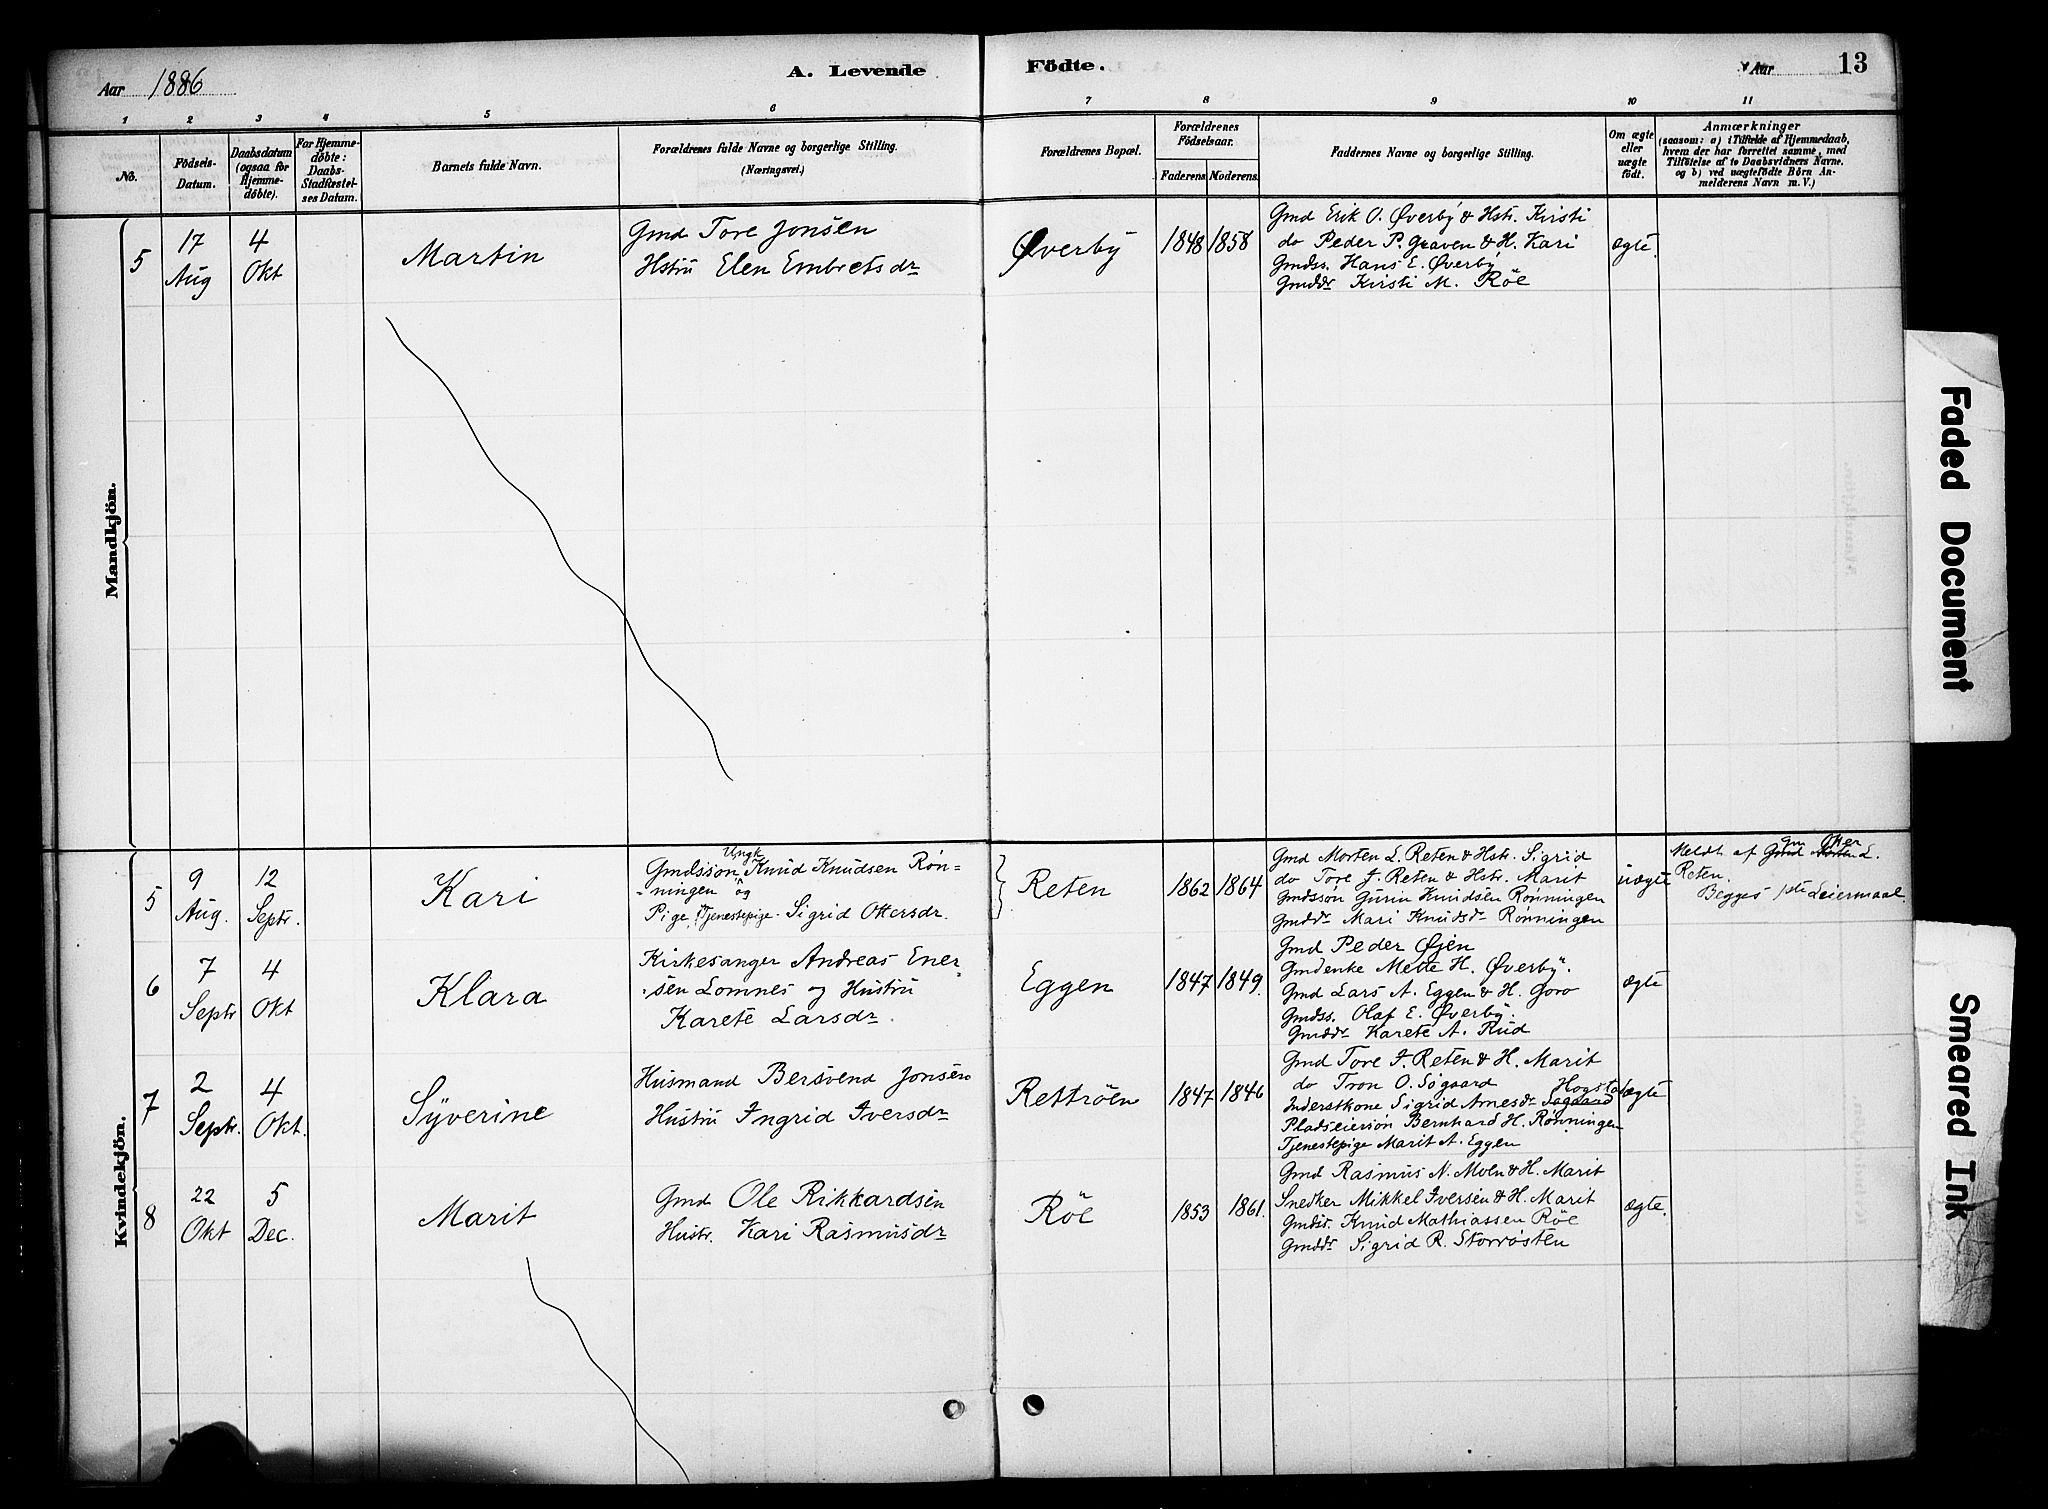 Aar 1886
A. Levende
Födte.
Aar
13
1 2 3 4 5 6 7 8 9 10 11
No.
Födsels-
Datum.
Daabsdatum
(ogsaa for
Hjemme-
döbte).
For Hjemme-
döbte:
Daabs-
Stadfæstel-
ses Datum.
Barnets fulde Navn.
Forældrenes fulde Navne og borgerlige Stilling.
(Næringsvei.)
Forældrenes Bopæl.
Forældrenes
Födselsaar.
Faderens. Moderens.
Faddernes Navne og borgerlige Stilling.
Om ægte
eller
uægte
födt.
Anmærkninger
(saasom: a) i Tilfælde af Hjemmedaab,
hvem der har forrettet samme, med
Tilföielse af to Daabsvidners Navne.
og b) ved uægtefödte Börn An-
melderens Navn m. V.)
Mandkjön.
5
17
Aug
4
Okt
Martin
Gmd Tore Jonsen
Hstru Elen Embretsdr
Øverby
1848
1858
Gmd Erik O. Øverby & Hstr. Kirsti
do Peder P. Graven & H. Kari
Gmdss. Hans E. Øverby
Gmddr Kirsti M. Röe
ægte.
Kvindekjön.
5
9
Aug.
12
Septr.
Kari
Ungk
Gmdssön Knud Knudsen Røn-
ningen og
Pige, Tjenestepige. Sigrid Ottersdr.
Reten
1862
1864
Gmd Morten L. Reten & Hstr. Sigrid
do Tore J. Reten & Hstr. Marit
Gmdssön Gurin Knudsen Rønningen
Gmddr Mari Knudsdr Rønningen
uægte
gm Otter
Meldt af Gmd Morten L.
Reten.
Begges 1ste Leiermaal.
6
7
Septr
4
Okt
Klara
Kirkesanger Andreas Ener-
sen Lomnes og Hustru
Karete Larsdr.
Eggen
1847
1849.
Gmd Peder Øjen
Gmdenke Mette H. Øverby.
Gmd Lars A. Eggen & H. Goro
Gmdss. Olaf E. Øverby.
Gmddr Karete A. Rud
ægte
7
2
Septr.
4
Okt.
Syverine
Husmand Bersvend Jonsen
Hustru Ingrid Iversdr
Rettröen
1847
1846
Gmd Tore J. Reten & H. Marit
do Tron O. Søgaard
Inderstkone Sigrid Arnesdr Søgaard
Pladseiersön Bernhard H. Rønningen
Tjenestepige Marit A. Eggen
ægte
8
22
Okt
5
Dec.
Marit
Gmd Ole Rikkardsen
Hustr. Kari Rasmusdr
Röe
1853
1861.
Gmd Rasmus N. Moen & H. Marit
Snedker Mikkel Iversen & H. Marit
Gmdss. Knud Mathiassen Röe
Gmddr Sigrid R. Storrösten
ægte.
Faded Document
Smeared Ink